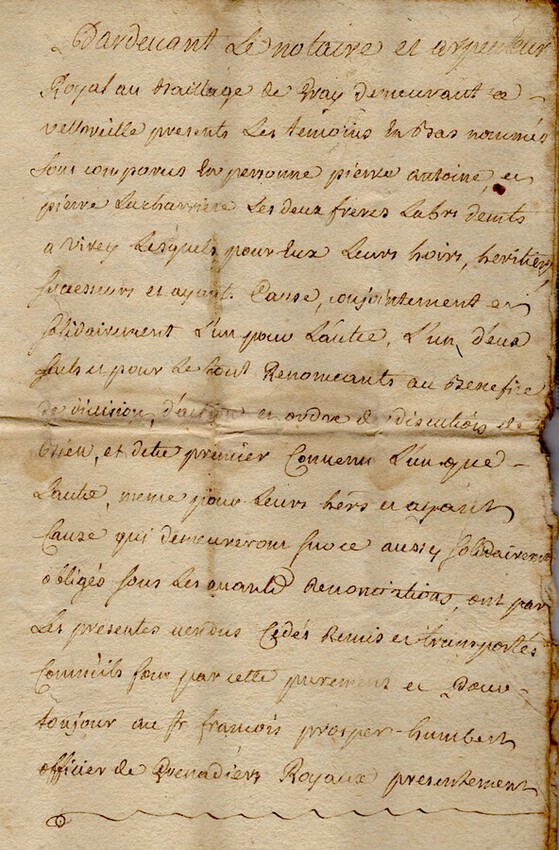 Pardevant Le notaire et arpenteur
Royal au Bailliage de Gray demeurant a
velloreille presents Les temoins En bas nommés
sont comparus En personne pierre antoine, et
pierre Lacharriere Les deux freres Labrs demts
a virey Lesquels pour Eux Leurs hoirs, heritiers,
successeurs et ayant Cause, conjointement et
solidairement L'un pour Lautre, L'un d'eux
seul et pour Le tout Renonceants au Benefice
de division, d'action et ordre de discutions de
bien, et detre premier Convenu L'un que
Lautre, meme pour Leurs hers et ayant
Cause qui demeureront sur ce aussy solidairement
obligés sous Les quante Renonciations, ont par
Les presentes vendus Cedés Remis et transportés
Comme ils font par cette purement et pour
toujour au Sr francois prosper humbert
officier de Grenadiers Royaux presentement